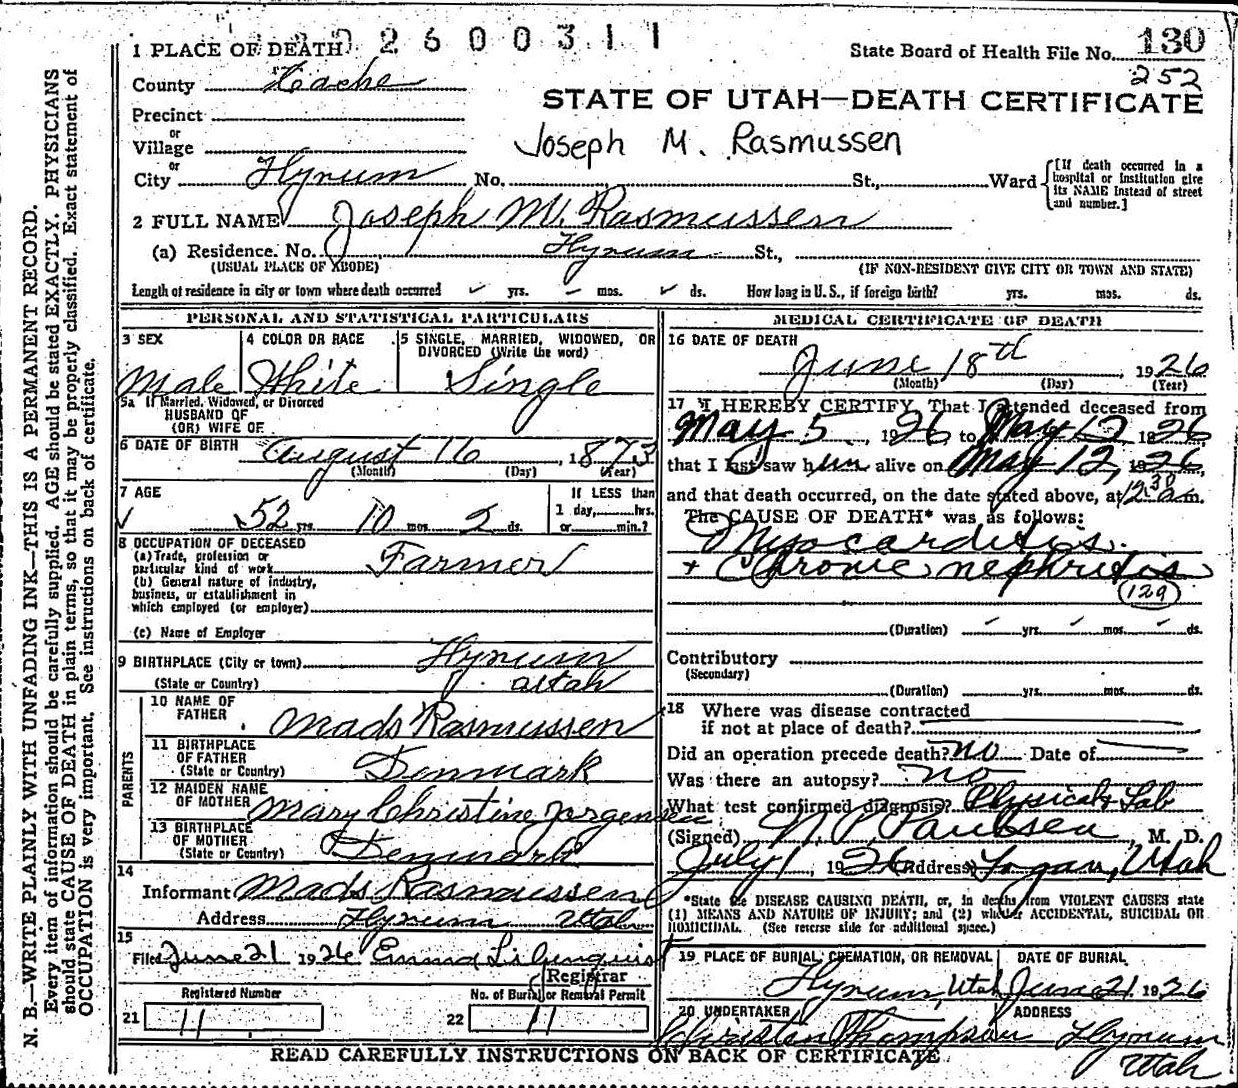 2600311
1 PLACE OF DEATH
State Board of Health File No. 130
252
County Cache
STATE OF UTAH—DEATH CERTIFICATE
Precinct
or
Village
Joseph M. Rasmussen
or
City Hyrum No. St., Ward
[If death occurred in a hospital or institution give its NAME instead of street and number.]
2 FULL NAME Joseph M. Rasmussen
(a) Residence. No. Hyrum St.,
(USUAL PLACE OF ABODE) (IF NON-RESIDENT GIVE CITY OR TOWN AND STATE)
Length of residence in city or town where death occurred yrs. mos. ds. How long in U. S., if foreign birth? yrs. mos. ds.
PERSONAL AND STATISTICAL PARTICULARS
3 SEX
Male
4 COLOR OR RACE
White
5 SINGLE, MARRIED, WIDOWED, OR
DIVORCED (Write the word)
Single
5a If Married, Widowed, or Divorced
HUSBAND OF
(OR) WIFE OF
6 DATE OF BIRTH August 16, 1873
(Month) (Day) (Year)
7 AGE
52 yrs. 10 mos. 2 ds.
If LESS than
1 day, hrs.
or min.?
8 OCCUPATION OF DECEASED
(a) Trade, profession or
particular kind of work Farmer
(b) General nature of industry,
business, or establishment in
which employed (or employer)
(c) Name of Employer
9 BIRTHPLACE (City or town) Hyrum
(State or Country) Utah
PARENTS
10 NAME OF
FATHER Mads Rasmussen
11 BIRTHPLACE
OF FATHER
(State or Country) Denmark
12 MAIDEN NAME
OF MOTHER Mary Christine Jorgensen
13 BIRTHPLACE
OF MOTHER
(State or Country) Denmark
14
Informant Mads Rasmussen
Address Hyrum Utah
15
Filed June 21 1926
Registrar
Registered Number
21 11
No. of Burial or Removal Permit
22 11
MEDICAL CERTIFICATE OF DEATH
16 DATE OF DEATH
June 18th, 1926
(Month) (Day) (Year)
17 I HEREBY CERTIFY, That I attended deceased from
May 5, 1926 to May 12 1926
that I last saw him alive on May 12, 1926,
and that death occurred, on the date stated above, at 12:30 a m.
The CAUSE OF DEATH* was as follows:
Myocarditis.
+ Chronic nephritis
129
(Duration) yrs. mos. ds.
Contributory
(Secondary)
(Duration) yrs. mos. ds.
18 Where was disease contracted
if not at place of death?
Did an operation precede death? no Date of
Was there an autopsy? no
What test confirmed diagnosis? Physical & Lab
(Signed) N. P. Paulsen, M. D.
July 1, 1926 (Address) Logan, Utah
*State the DISEASE CAUSING DEATH, or, in deaths from VIOLENT CAUSES state
(1) MEANS AND NATURE OF INJURY; and (2) whether ACCIDENTAL, SUICIDAL OR
HOMICIDAL. (See reverse side for additional space.)
19 PLACE OF BURIAL, CREMATION, OR REMOVAL
Hyrum, Utah
DATE OF BURIAL
June 21 1926
20 UNDERTAKER
Christen Thompson
ADDRESS
Hyrum
Utah
READ CAREFULLY INSTRUCTIONS ON BACK OF CERTIFICATE
N. B.—WRITE PLAINLY WITH UNFADING INK—THIS IS A PERMANENT RECORD.
Every item of information should be carefully supplied. AGE should be stated EXACTLY. PHYSICIANS
should state CAUSE OF DEATH in plain terms, so that it may be properly classified. Exact statement of
OCCUPATION is very important. See instructions on back of certificate.